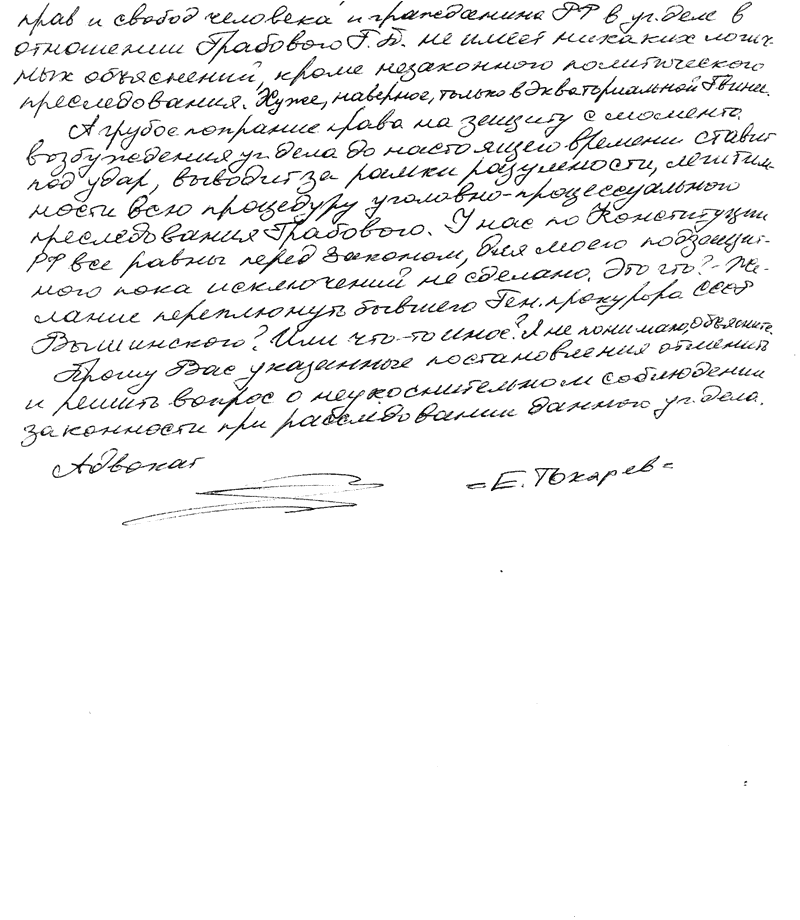 прав и свобод человека и гражданина РФ в уг. деле в
отношении Грабового Г.П. не имеет никаких логич-
ных объяснений, кроме незаконного политического
преследования. Хуже, наверное, только в Экваториальной Гвинеи.
А грубое попрание права на защиту с момента
возбуждения уг. дела до настоящего времени ставит
под удар, выводит за рамки разумности, легитим-
ности всю процедуру уголовно-процессуального
преследования Грабового. У нас по Конституции
РФ все равны перед Законом, для моего подзащит-
мого пока исключений не сделано. Это что? - Же-
лание переплюнуть бывшего Ген. прокурора СССР
Вышинского? Или что-то иное? Я не понимаю, объясните.
Прошу Вас указанные постановления отменить
и решить вопрос о неукоснительном соблюдении
законности при расследовании данного уг. дела.
Адвокат
= Е. Токарев =